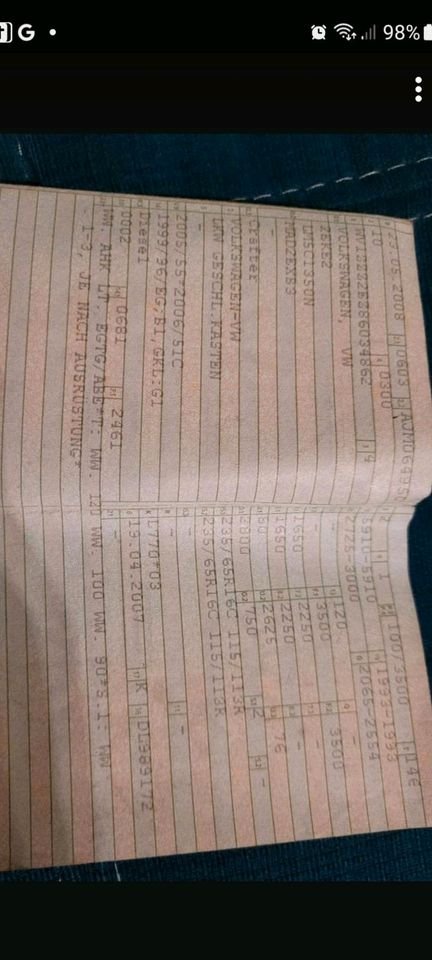 G • 98%
23.05.2008 0603 AJM
10 0300
WV1ZZZ2EZ86034862 4
VOLKSWAGEN, VW
2EKE2
Crafter
VOLKSWAGEN-VW
LKW GESCHL.KASTEN
-
2005/55*2006/51C
1999/96/EG,B1,GKL:G1
Diesel
0002 0681 2461
WW. AHK LT. EGTG/ABE*T: WW. 120 WW. 100 WW. 90*S.1: WW
. 1-3, JE NACH AUSRÜSTUNG*
2 1 100/3500 146
5910-5910 1993-1993
2725-3000 2065-2554
- 120 - 3500
1650 3500 -
1650 2250 -
- 2250 -
- 2625 76
2000 750 2 -
235/65R16C 115/113R
235/65R16C 115/113R
-
- -
L770*03
19.04.2007 K